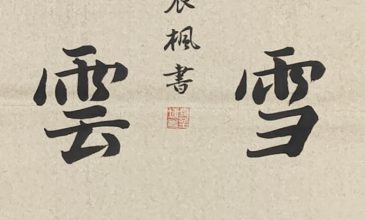 雪
枫書
雲